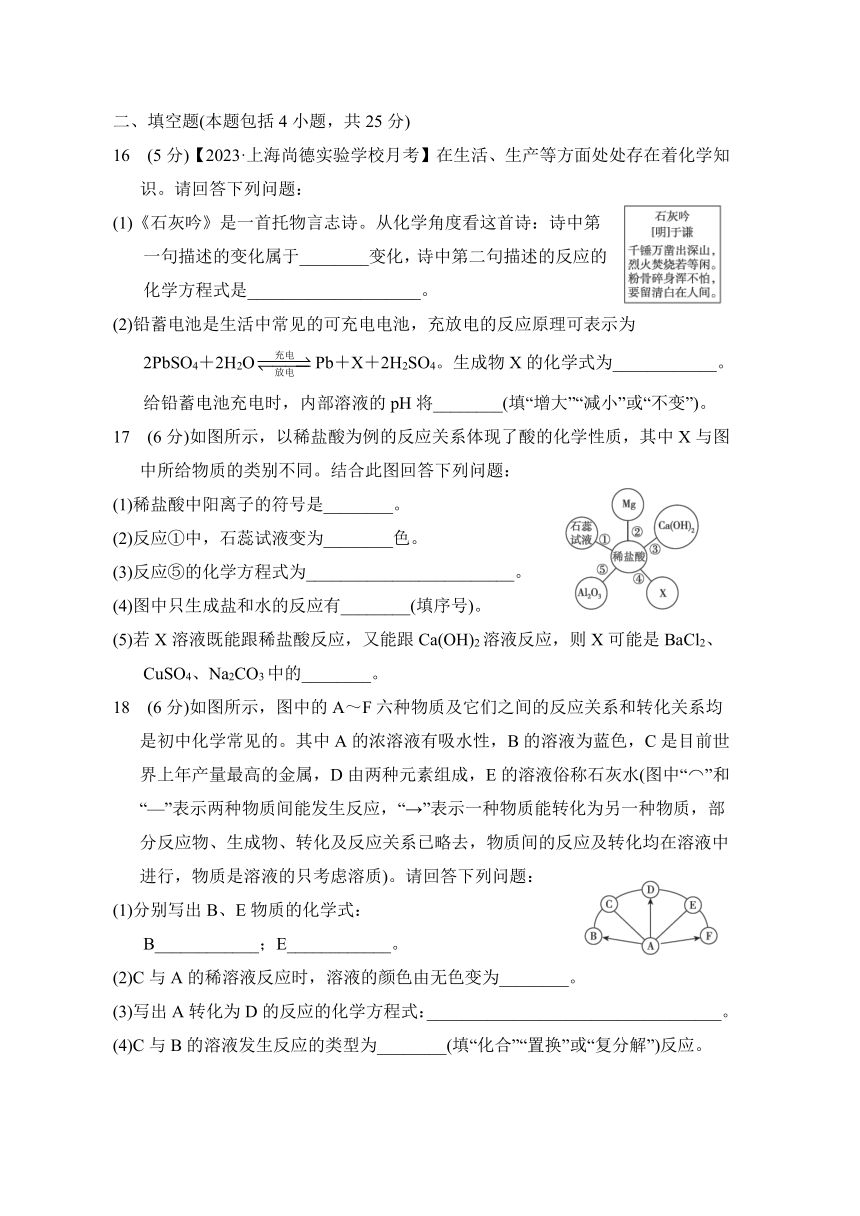 二、填空题(本题包括 4 小题，共 25 分)
16 (5 分)【2023·上海尚德实验学校月考】在生活、生产等方面处处存在着化学知
识。请回答下列问题：
(1)《石灰吟》是一首托物言志诗。从化学角度看这首诗：诗中第
一句描述的变化属于________变化，诗中第二句描述的反应的
化学方程式是____________________。
石灰吟
[明]于谦
千锤万凿出深山，
烈火焚烧若等闲。
粉骨碎身浑不怕，
要留清白在人间。
(2)铅蓄电池是生活中常见的可充电电池，充放电的反应原理可表示为
2PbSO₄＋2H₂O 充电 放电 Pb＋X＋2H₂SO₄。生成物 X 的化学式为____________。
给铅蓄电池充电时，内部溶液的 pH 将________(填“增大”“减小”或“不变”)。
17 (6 分)如图所示，以稀盐酸为例的反应关系体现了酸的化学性质，其中 X 与图
中所给物质的类别不同。结合此图回答下列问题：
(1)稀盐酸中阳离子的符号是________。
(2)反应①中，石蕊试液变为________色。
(3)反应⑤的化学方程式为________________________。
(4)图中只生成盐和水的反应有________(填序号)。
Mg
石蕊
试液
Ca(OH)₂
①
②
③
稀盐酸
⑤
④
Al₂O₃
X
(5)若 X 溶液既能跟稀盐酸反应，又能跟 Ca(OH)₂ 溶液反应，则 X 可能是 BaCl₂、
CuSO₄、Na₂CO₃ 中的________。
18 (6 分)如图所示，图中的 A～F 六种物质及它们之间的反应关系和转化关系均
是初中化学常见的。其中 A 的浓溶液有吸水性，B 的溶液为蓝色，C 是目前世
界上年产量最高的金属，D 由两种元素组成，E 的溶液俗称石灰水(图中“⌒”和
“—”表示两种物质间能发生反应，“→”表示一种物质能转化为另一种物质，部
分反应物、生成物、转化及反应关系已略去，物质间的反应及转化均在溶液中
进行，物质是溶液的只考虑溶质)。请回答下列问题：
(1)分别写出 B、E 物质的化学式：
B____________；E____________。
D
C
E
B
A
F
(2)C 与 A 的稀溶液反应时，溶液的颜色由无色变为________。
(3)写出 A 转化为 D 的反应的化学方程式：__________________________________。
(4)C 与 B 的溶液发生反应的类型为________(填“化合”“置换”或“复分解”)反应。